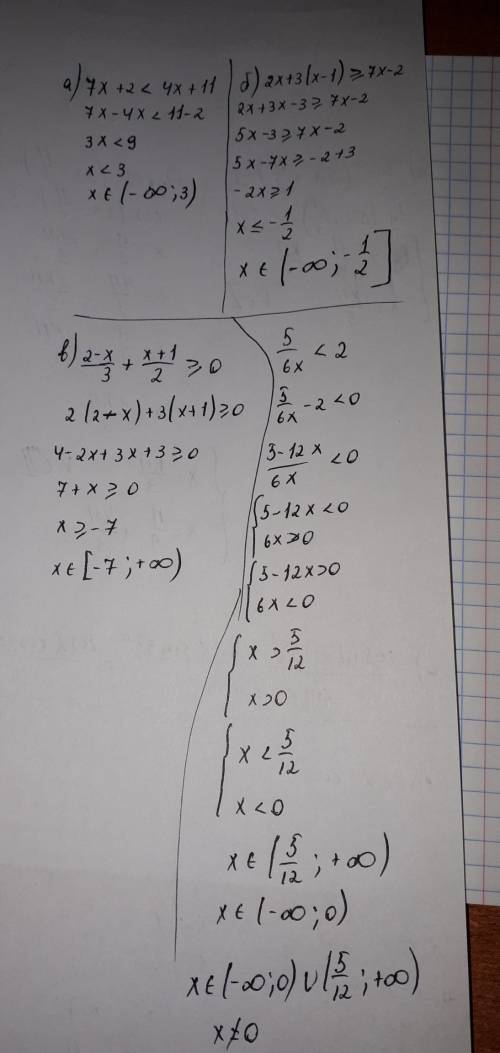 а) 7x+2 < 4x+11
7x-4x < 11-2
3x < 9
x < 3
x ∈ (-∞;3)
б) 2x+3(x-1) ≥ 7x-2
2x+3x-3 ≥ 7x-2
5x-3 ≥ 7x-2
5x-7x ≥ -2+3
-2x ≥ 1
x ≤ -1/2
x ∈ (-∞; -1/2]
в) (2-x)/3 + (x+1)/2 ≥ 0
2(2-x)+3(x+1) ≥ 0
4-2x+3x+3 ≥ 0
7+x ≥ 0
x ≥ -7
x ∈ [-7;+∞)
5/6x < 2
5/6x - 2 < 0
(5-12x)/6x < 0
{5-12x < 0
6x > 0
{5-12x > 0
6x < 0
{x > 5/12
x > 0
{x < 5/12
x < 0
x ∈ (5/12; +∞)
x ∈ (-∞;0)
x ∈ (-∞;0) ∪ (5/12; +∞)
x ≠ 0